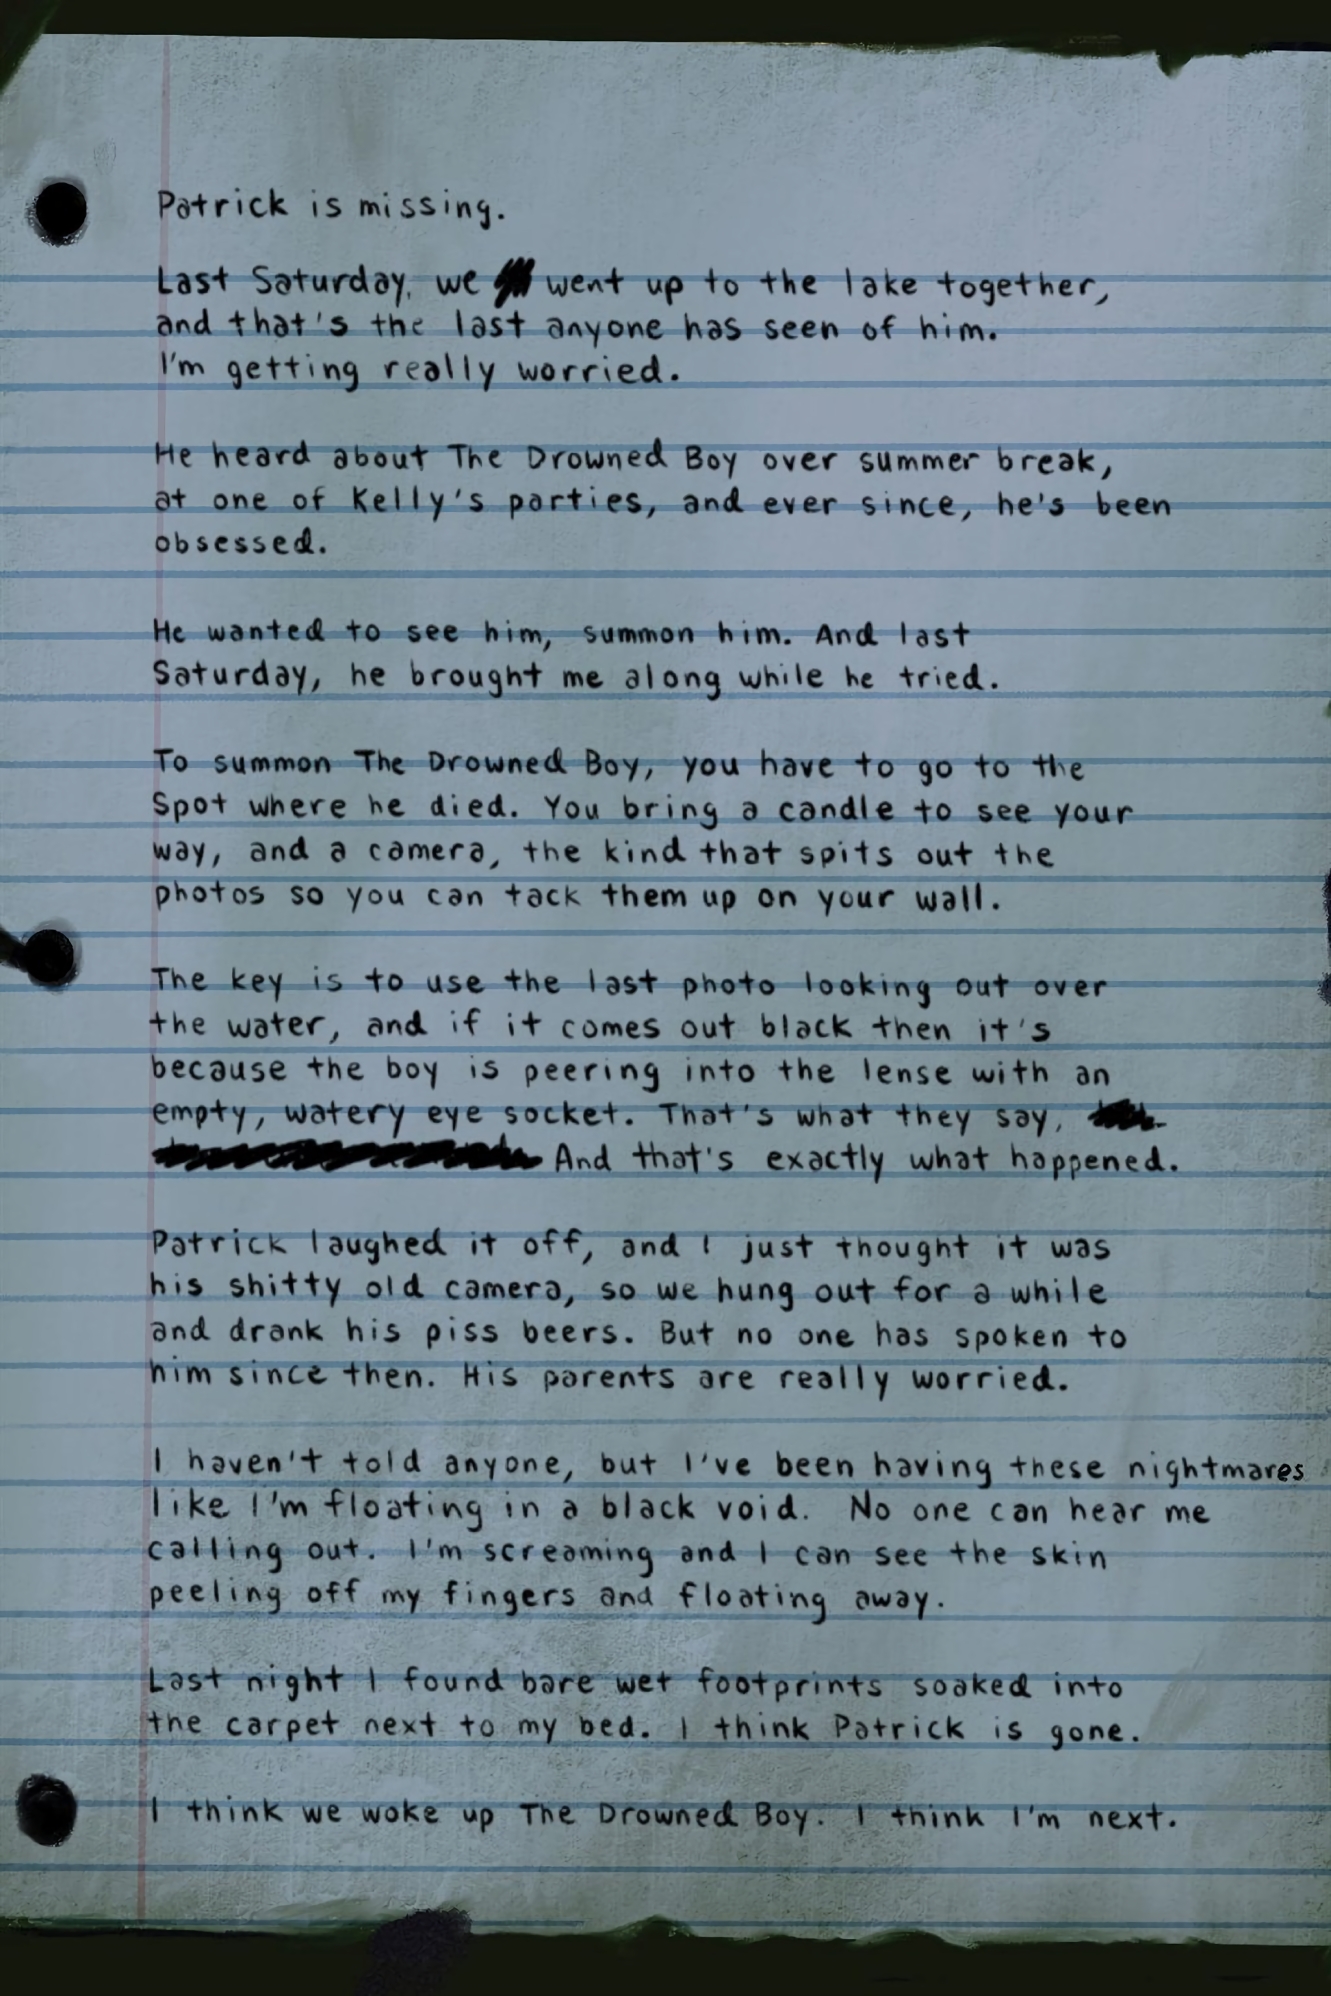 Patrick is missing.
Last Saturday, we went up to the lake together,
and that's the last anyone has seen of him.
I'm getting really worried.
He heard about The Drowned Boy over summer break,
at one of Kelly's parties, and ever since, he's been
obsessed.
He wanted to see him, summon him. And last
Saturday, he brought me along while he tried.
To summon The Drowned Boy, you have to go to the
spot where he died. You bring a candle to see your
way, and a camera, the kind that spits out the
photos so you can tack them up on your wall.
The key is to use the last photo looking out over
the water, and if it comes out black then it's
because the boy is peering into the lense with an
empty, watery eye socket. That's what they say,
And that's exactly what happened.
Patrick laughed it off, and I just thought it was
his shitty old camera, so we hung out for a while
and drank his piss beers. But no one has spoken to
him since then. His parents are really worried.
I haven't told anyone, but I've been having these nightmares
like I'm floating in a black void. No one can hear me
calling out. I'm screaming and I can see the skin
peeling off my fingers and floating away.
Last night I found bare wet footprints soaked into
the carpet next to my bed. I think Patrick is gone.
I think we woke up The Drowned Boy. I think I'm next.